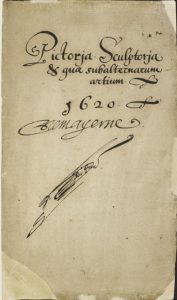 Pictorja Sculptorja
& quæ subalternarum
artium
1620
TDemayerne